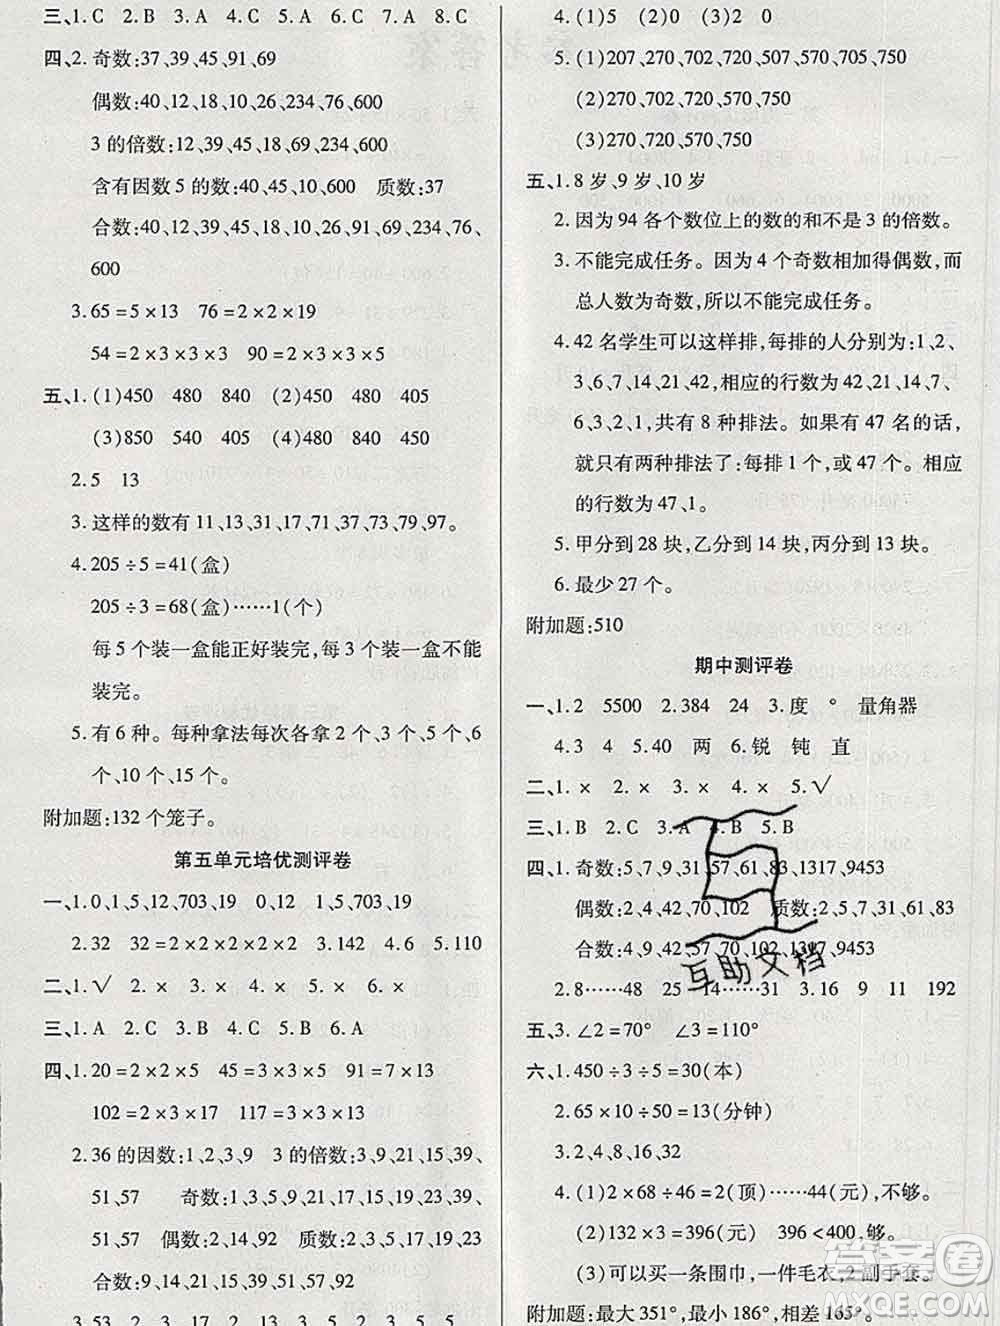 三、1. C 2. B 3. A 4. C 5. C 6. C 7. A 8. C
四、2. 奇数:37、39、45、91、69
偶数:40、12、18、10、26、234、76、600
3 的倍数:12、39、45、18、69、234、600
含有因数 5 的数:40、45、10、600 质数:37
合数:40、39、45、12、18、91、10、26、69、234、76、
600
3. 65 = 5 × 13 76 = 2 × 2 × 19
54 = 2 × 3 × 3 × 3 90 = 2 × 3 × 3 × 5
五、1. (1)450 480 840 (2)450 480 405
(3)850 540 405 (4)480 840 450
2. 5 13
3. 这样的数有 11、13、31、17、71、37、73、79、97。
4. 205 ÷ 5 = 41(盒)
205 ÷ 3 = 68(盒)……1(个)
每 5 个装一盒能正好装完,每 3 个装一盒不能
装完。
5. 有 6 种。每种拿法每次各拿 2 个、3 个、5 个、6
个、10 个、15 个。
附加题:132 个笼子。
第五单元培优测评卷
一、1. 0、1、5、12、703、19 0、12 1、5、703、19
2. 32 32 = 2 × 2 × 2 × 2 × 2 3. 142 4. 6 5. 110
二、1. √ 2. × 3. × 4. × 5. × 6. ×
三、1. A 2. C 3. B 4. C 5. B 6. A
四、1. 20 = 2 × 2 × 5 45 = 3 × 3 × 5 91 = 7 × 13
102 = 2 × 3 × 17 57 = 3 × 19
2. 36 的因数:1、2、3、9 3 的倍数:3、9、21、15、39、
51、57 奇数:1、3、5、9、21、15、17、19、23、39、
51、57 偶数:2、14、92 质数:2、3、5、17、19、23
合数:9、14、21、15、39、51、57、92
4. (1)5 (2)0 (3)2 0
5. (1)207、270、702、720、507、570、705、750
(2)270、702、720、570、750
(3)270、720、570、750
五、1. 8 岁、9 岁、10 岁
2. 因为 94 各个数位上的数的和不是 3 的倍数。
3. 不能完成任务。因为 4 个奇数相加得偶数,而
总人数为奇数,所以不能完成任务。
4. 42 名学生可以这样排,每排的人分别为:1、2、
3、6、7、14、21、42,相应的行数为 42、21、14、7、
6、3、2、1,共有 8 种排法。如果有 47 名的话,
就只有两种排法了:每排 1 个,或 47 个。相应
的行数为 47、1。
5. 甲分到 28 块,乙分到 14 块,丙分到 13 块。
6. 最少 27 个。
附加题:510
期中测评卷
一、1. 2 5500 2. 384 24 3. 度 ° 量角器
4. 3 4 5. 40 两 6. 锐 钝 直
二、1. × 2. × 3. × 4. × 5. √
三、1. B 2. C 3. A 4. B 5. B
四、1. 奇数:5、7、9、31、57、61、83、1317、9453
偶数:2、4、42、70、102 质数:2、5、7、31、61、83
合数:4、9、42、57、70、102、1317、9453
2. 8……48 25 14……31 3. 16 9 11 192
五、3. ∠2 = 70° ∠3 = 110°
六、1. 450 ÷ 3 ÷ 5 = 30(本)
2. 65 × 10 ÷ 50 = 13(分钟)
3. 2、4、8、16、32
4. (1)2 × 68 ÷ 46 = 2(顶)……44(元),不够。
(2)132 × 3 = 396(元) 396 < 400,够。
(3)可以买一条围巾,一件毛衣,2 副手套。
附加题:最大 351°,最小 186°,相差 165°。
互助文档
答案圈
MXQE.COM